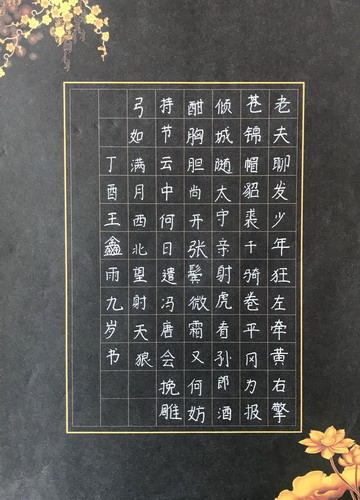 老夫聊发少年狂左牵黄右擎
苍锦帽貂裘千骑卷平冈为报
倾城随太守亲射虎看孙郎酒
酣胸胆尚开张鬓微霜又何妨
持节云中何日遣冯唐会挽雕
弓如满月西北望射天狼
丁酉王鑫雨九岁书